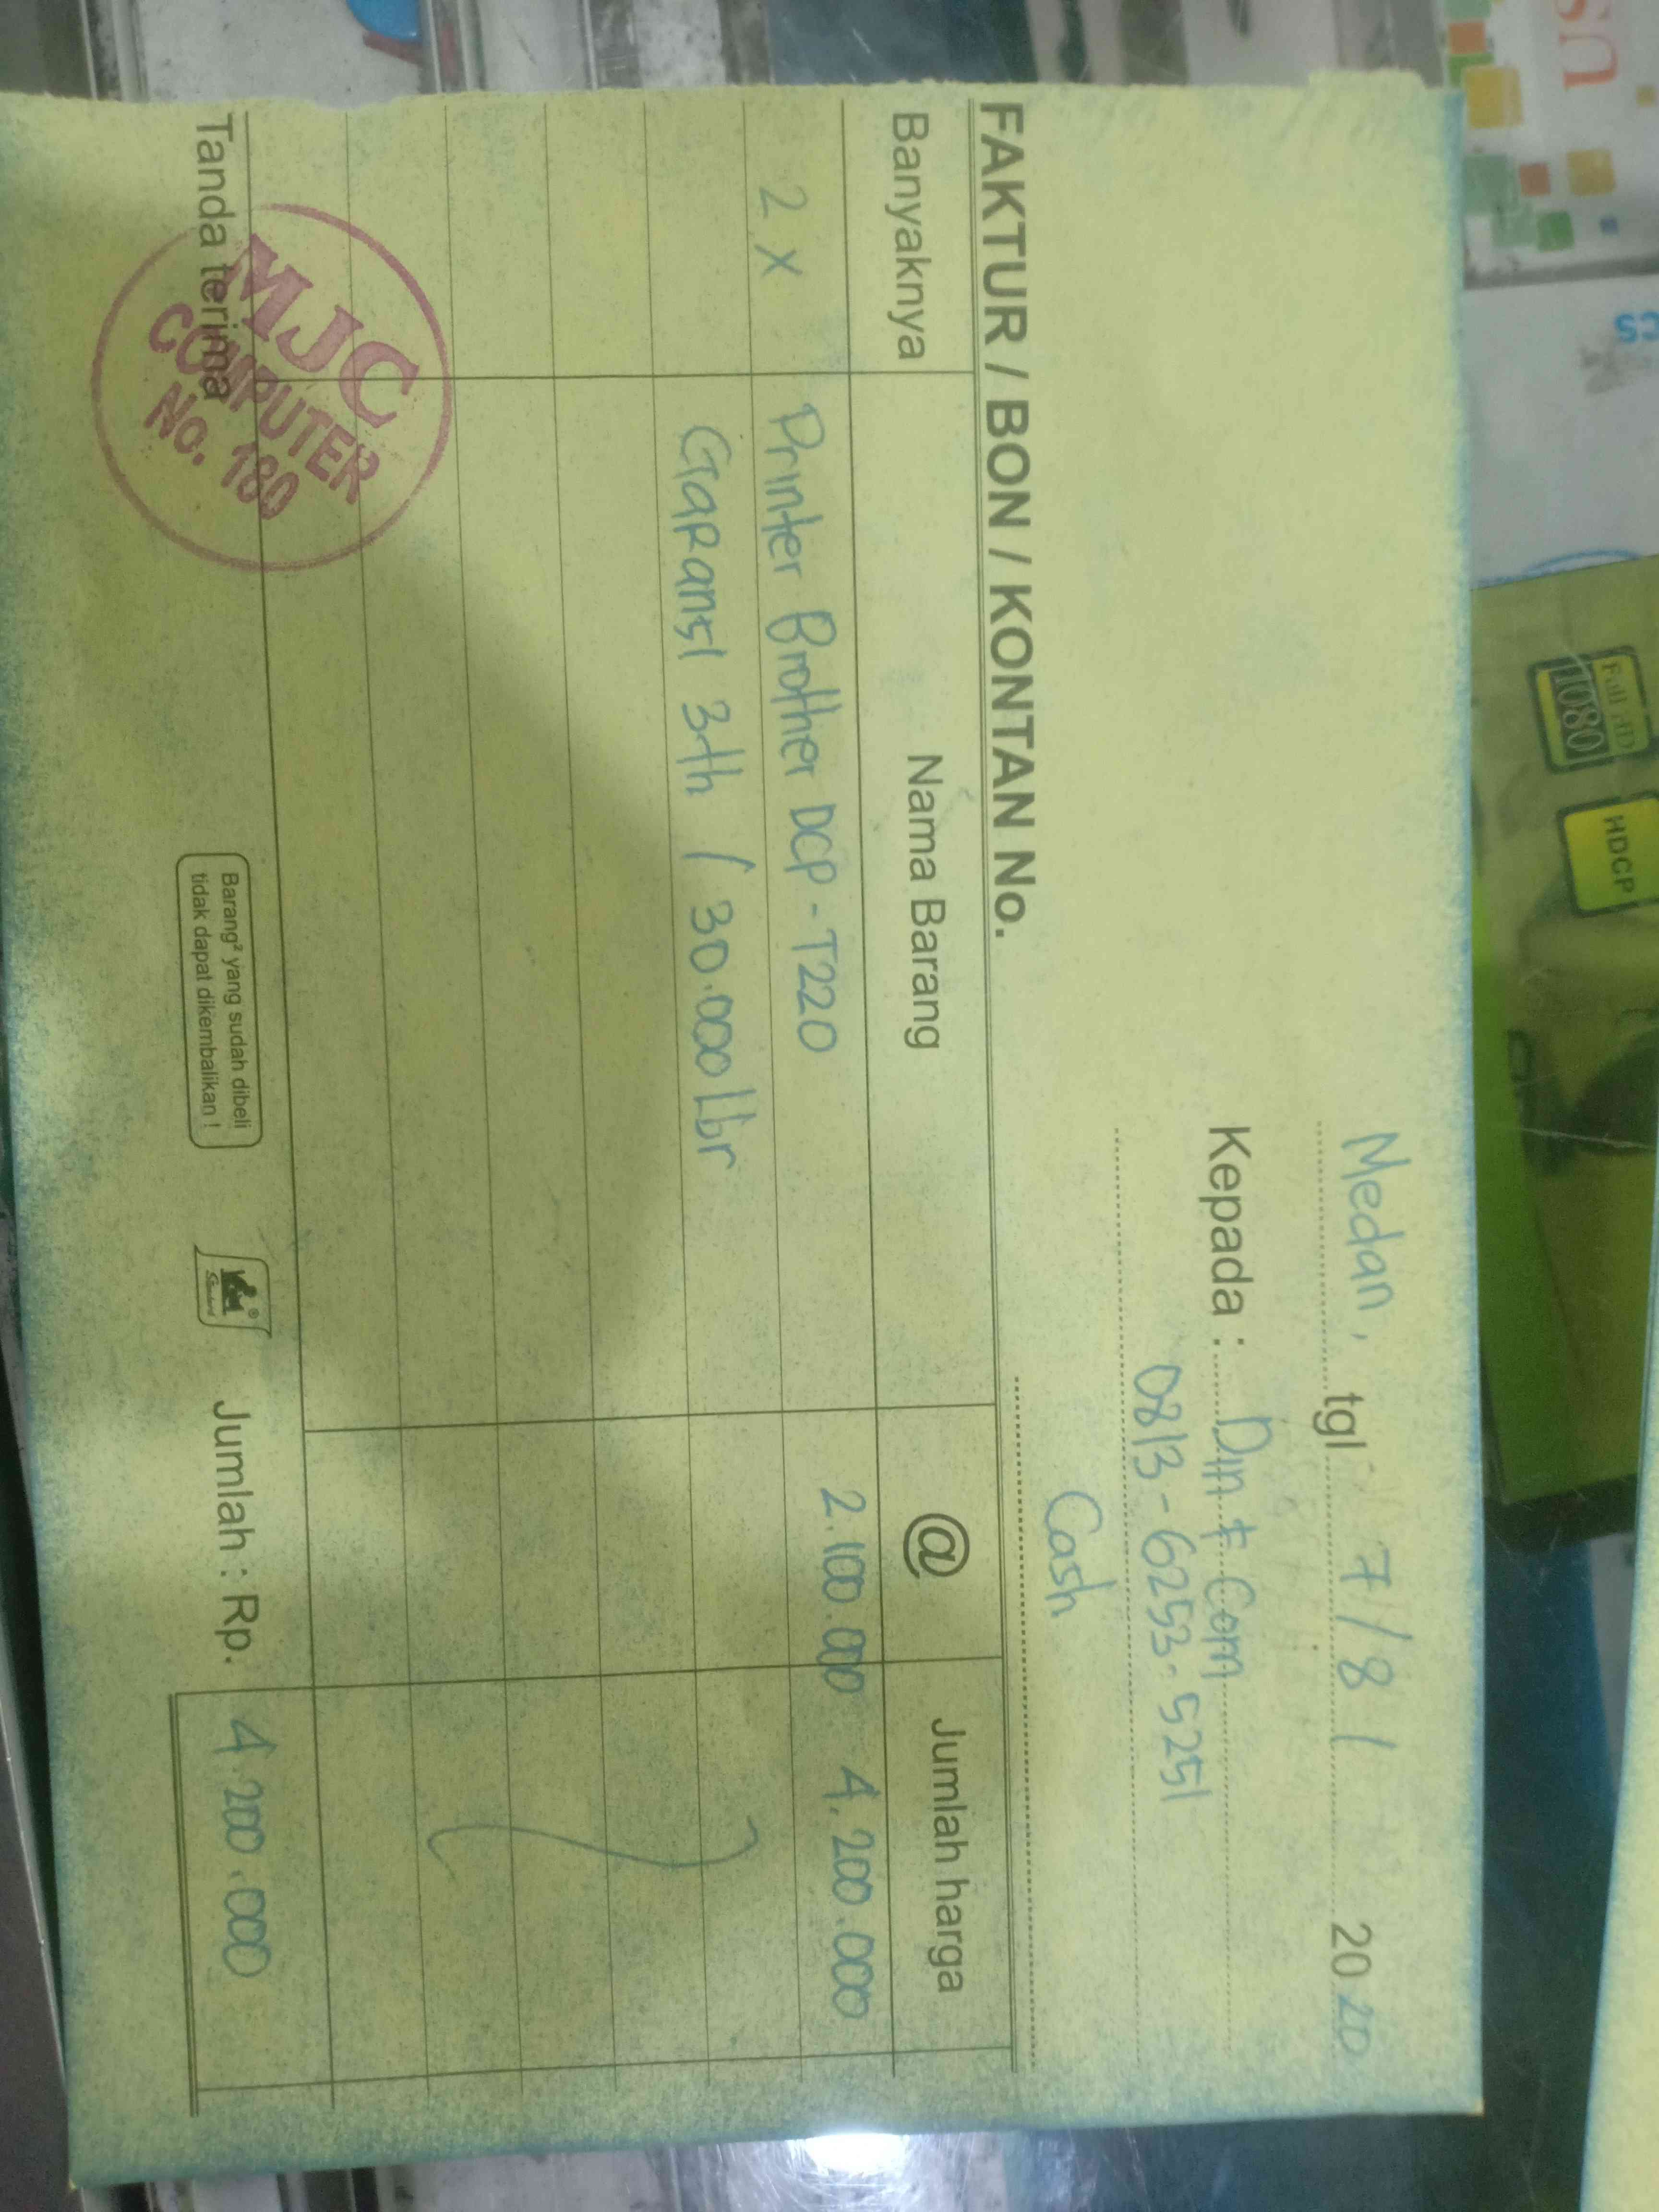 Medan, tgl 7/8/ 20 20
Kepada : Din & Com
0813-6253-5251
Cash
FAKTUR / BON / KONTAN No.
Banyaknya Nama Barang @ Jumlah harga
2 x Printer Brother DCP-T220 2.100.000 4.200.000
Garansi 3th / 30.000 lbr
Tanda terima
MJC
COMPUTER
No. 180
Barang² yang sudah dibeli
tidak dapat dikembalikan !
Jumlah : Rp. 4.200.000
Full HD
1080
HDCP